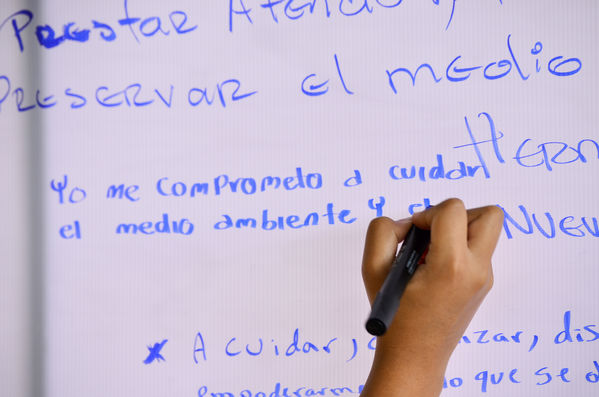 Prestar Atención y
PRESERVAR el medio
Yo me comprometo a cuidar
el medio ambiente y el
Hern
NUEV
* A cuidar, zar, dis
que se